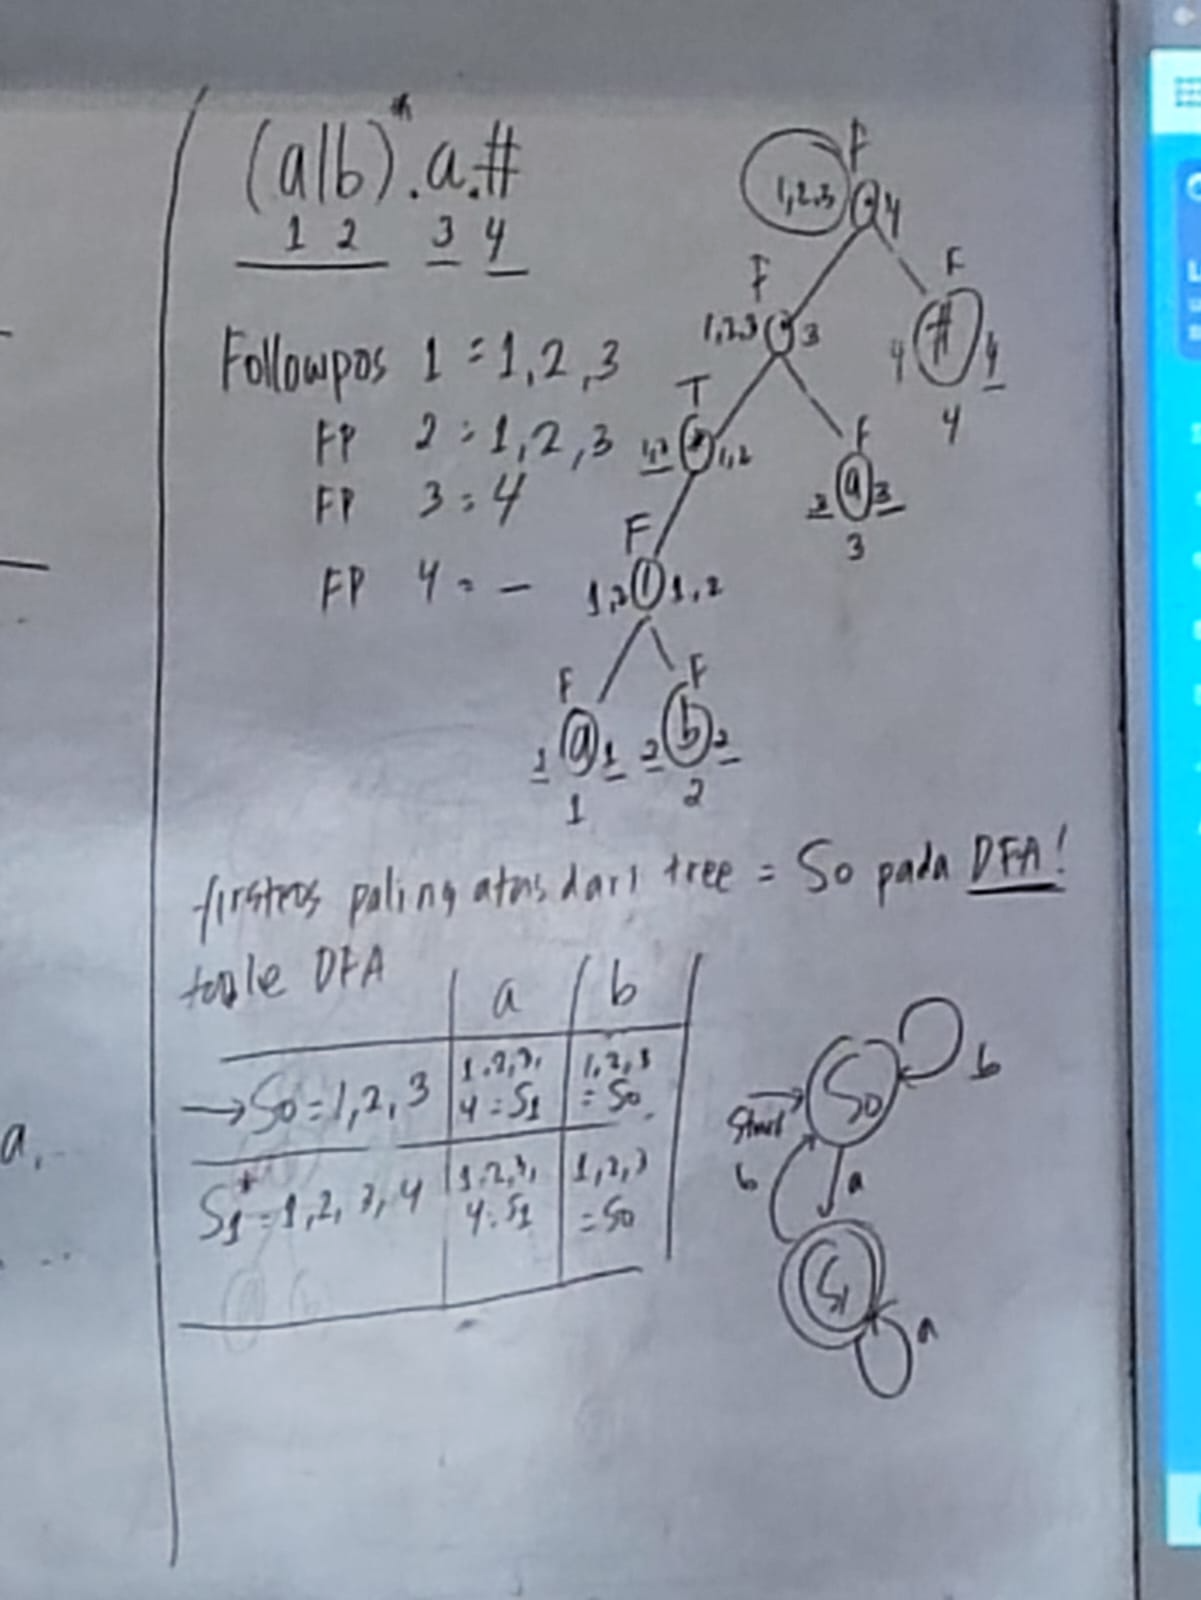 (a|b)*.a.#
1 2 3 4
Followpos 1 = 1,2,3
FP 2 = 1,2,3
FP 3 = 4
FP 4 = -
F
1,2,3 . 4
F
1,2,3 . 3
F
4 # 4
4
T
1,2 * 1,2
F
3 a 3
3
F
1,2 | 1,2
F
1 a 1
1
F
2 b 2
2
firstpos paling atas dari tree = S0 pada DFA!
table DFA
a b
→S0 = 1,2,3 1,2,3,4 = S1 1,2,3 = S0
S1* = 1,2,3,4 1,2,3,4 = S1 1,2,3 = S0
S0
b
Start
b
a
S1
a
a.